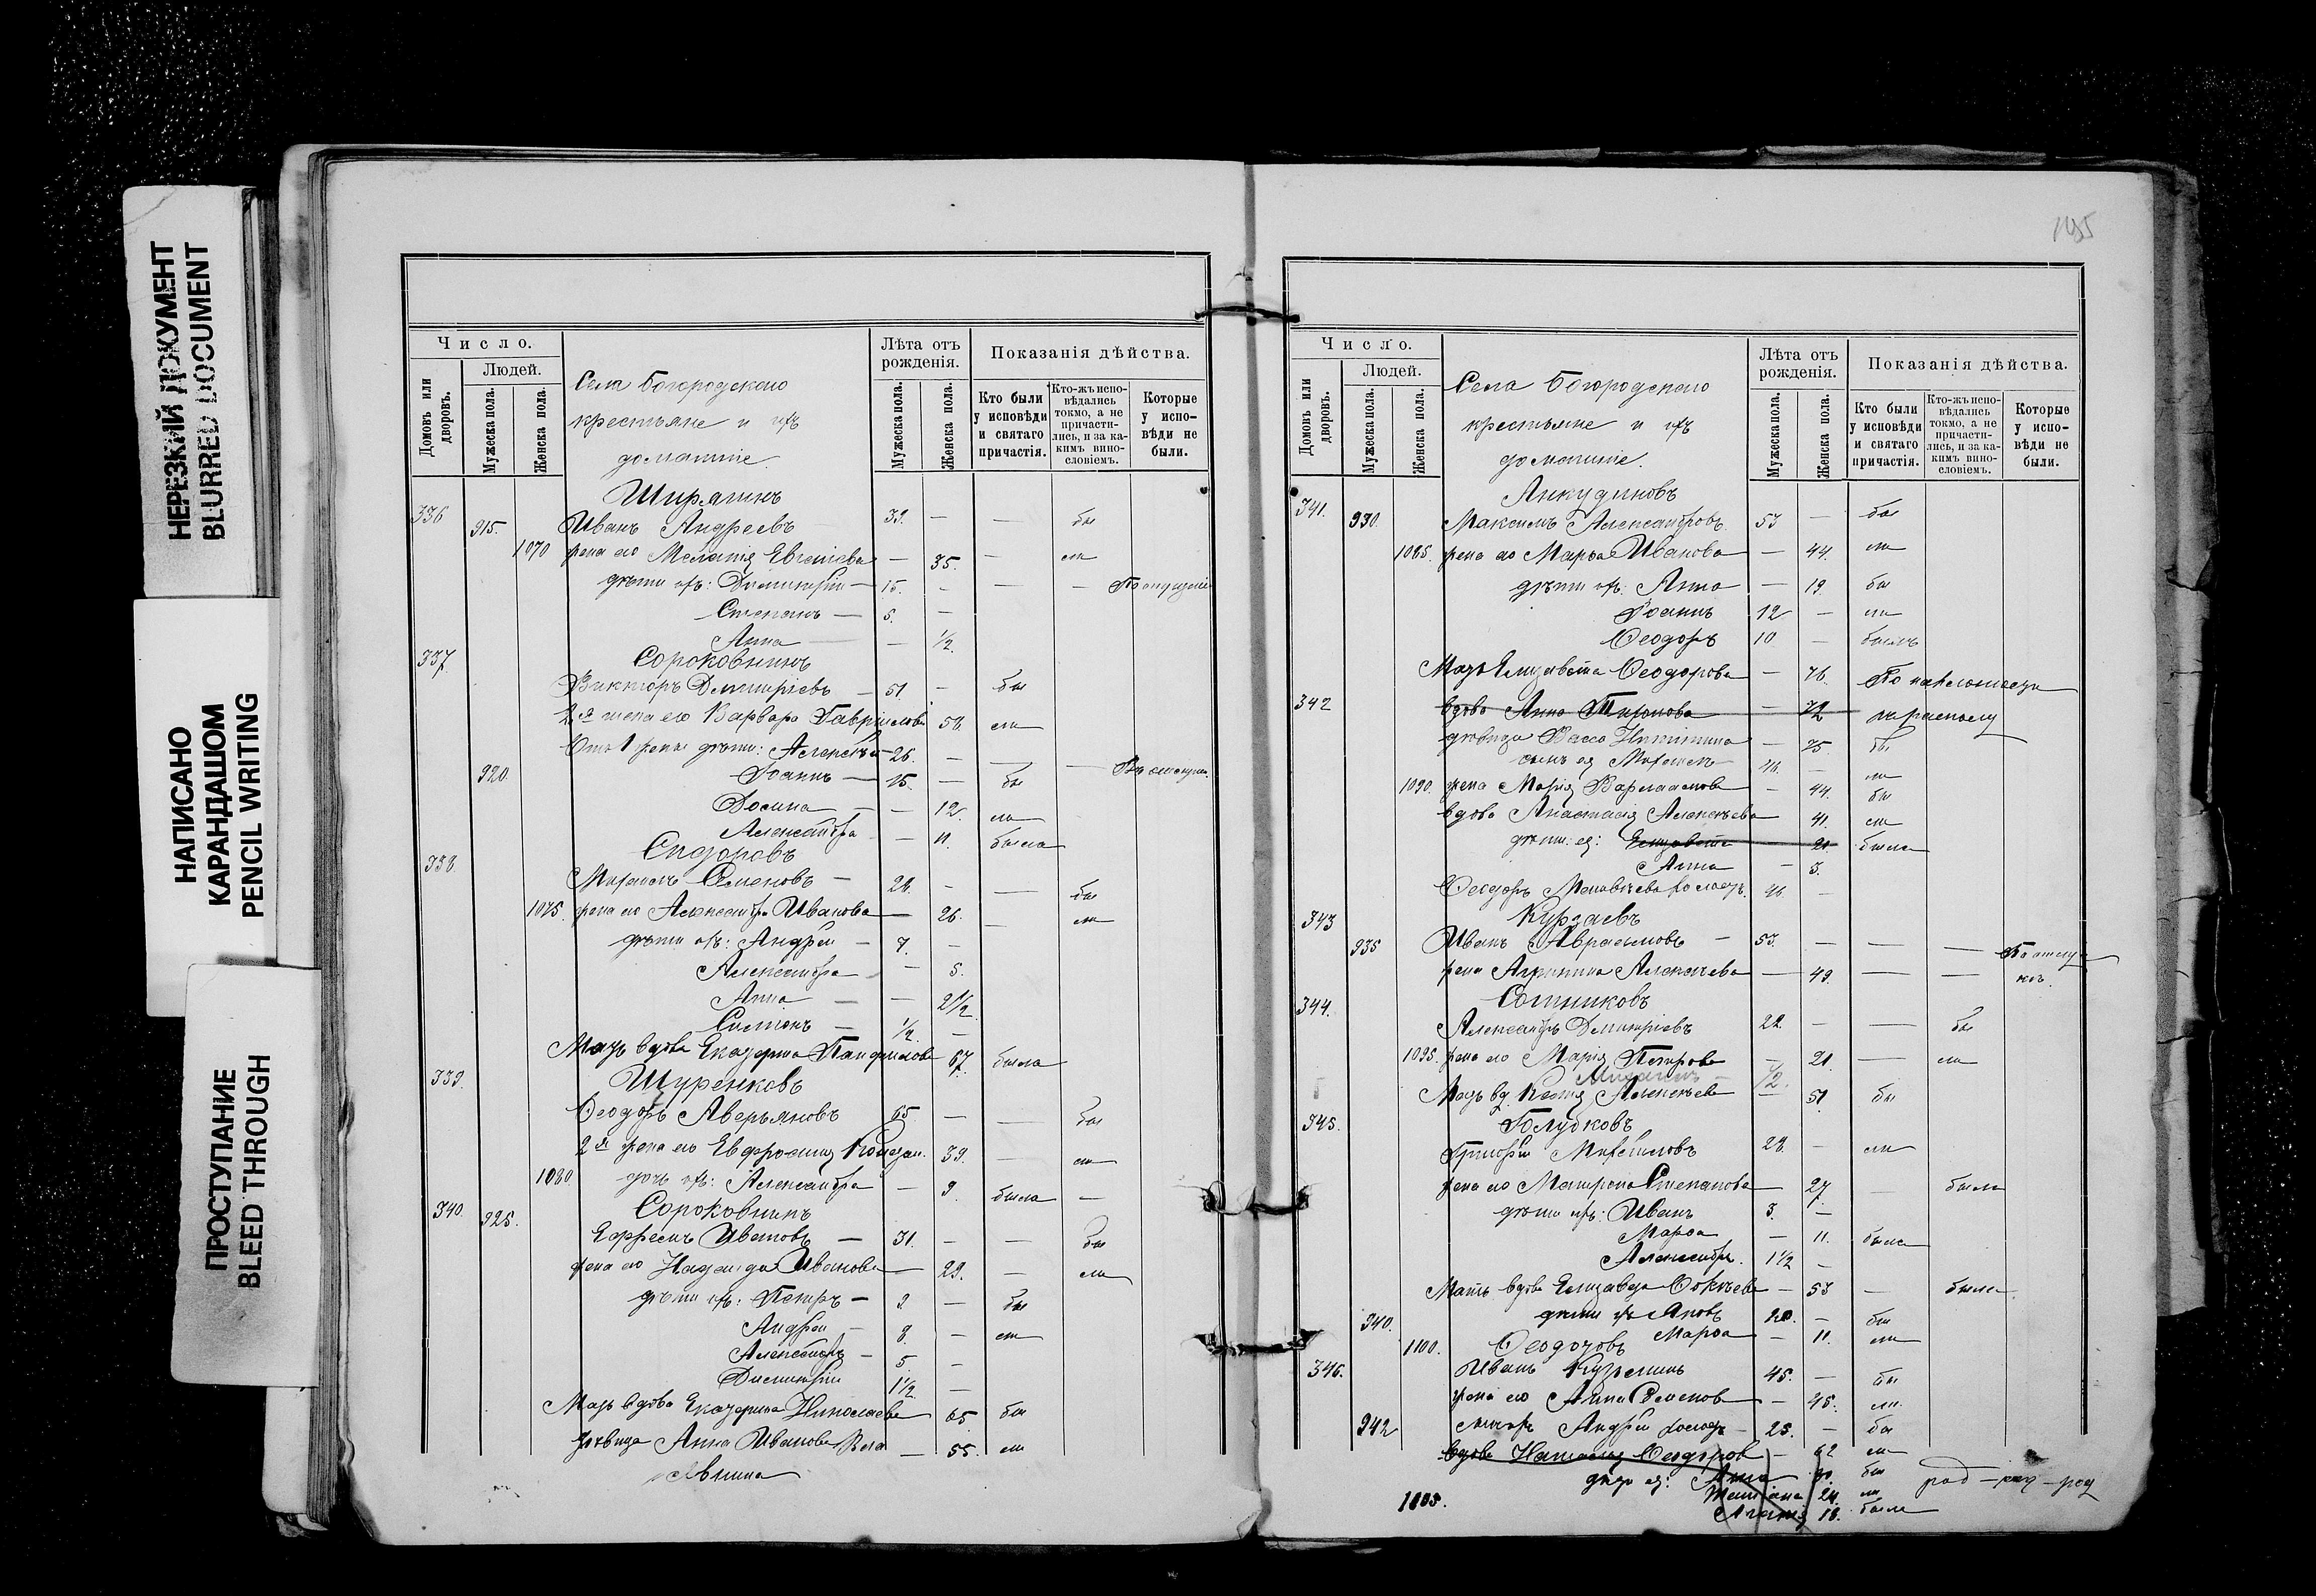 НЕРЕЗКИЙ ДОКУМЕНТ
BLURRED DOCUMENT
НАПИСАНО
КАРАНДАШОМ
PENCIL WRITING
ПРОСТУПАНИЕ
BLEED THROUGH
Число.
Людей.
Домовъ или дворовъ.
Мужеска пола.
Женска пола.
Села Богородскаго
крестьяне и ихъ
домашніе.
Лѣта отъ рожденія.
Мужеска пола.
Женска пола.
Показанія дѣйства.
Кто были у исповѣди и святаго причастія.
Кто-жъ исповѣдались токмо, а не причастились, и за какимъ винословіемъ.
Которые у исповѣди не были.
336 Ширягинъ
915. Иванъ Андреевъ 39. — — бы
1070 жена его Мелатія Евгеніева — 35. — ли
дѣти ихъ: Димитрій — 15. — — —
Степанъ — 5. —
Анна — 1/2.
337 Сороковнинъ
Викторъ Димитріевъ — 51 — бы
2я жена его Варвара Гавріилова 58. ли
Отъ 1 жены дѣти: Алексѣй — 26. — — —
920. Іоаннъ — 15. — бы
Домна — — 12. ли
Александра — 11. была
338 Сидоровъ
Михаилъ Семеновъ — 28. — — бы
1075. жена его Александра Иванова — 26. — ли
дѣти ихъ: Андрей — 7. —
Александра — 5.
Анна — — 2 1/2
Симеонъ — 1/2. —
Мать вдова Екатерина Панфилова 67. была
339. Шуренковъ
Ѳеодоръ Аверьяновъ 65. — — бы
2я жена его Евфросинія 39. — ли
1080 дочь ихъ: Александра — 9. была —
340. Сороковнинъ
925. Ефремъ Ивановъ — 31. — — бы
жена его Надежда Иванова — 29. — ли
дѣти ихъ: Петръ — 9 — бы
Андрей — 8. — ли
Александръ — 5. —
Димитрій 1 1/2. —
Мать вдова Екатерина Николаева 65. бы
дѣвица Анна Иванова — 55. ли
Число.
Людей.
Домовъ или дворовъ.
Мужеска пола.
Женска пола.
Села Богородскаго
крестьяне и ихъ
домашніе.
Лѣта отъ рожденія.
Мужеска пола.
Женска пола.
Показанія дѣйства.
Кто были у исповѣди и святаго причастія.
Кто-жъ исповѣдались токмо, а не причастились, и за какимъ винословіемъ.
Которые у исповѣди не были.
341. Анкудиновъ
930. Максимъ Александровъ 53 — бы
1085. жена его Марѳа Иванова — 44. ли
дѣти ихъ: Анна — 19. бы
Іоаннъ 12 — ли
Ѳеодоръ 10 — былъ
Мать Елизавета Ѳеодорова — 76. По наклонности
342 вдова Анна — 72 къ расколу
дѣвица Васса Никитина — 75 бы
сынъ ея Михаилъ 46. — ли
1090. жена Марія Варлаамова — 44. бы
вдова Анастасія Алексѣева 41. ли
дѣти ея: Елизавета — 21. была
Анна — 3.
Ѳеодоръ холостъ. 46. —
343 Курзаевъ
935 Иванъ Аврамовъ — 53. — — —
жена Агрипина Алексѣева — 49. — —
344. Сотниковъ
Александръ Димитріевъ 22. — — бы
1095. жена его Марія Петрова — 21. — ли
Михаилъ — 1/2.
Мать вд. Ксенія Алексѣева — 51 бы
345. Голубковъ
Григорій Михаиловъ 28. — ли
жена его Матрона Степанова — 27. — была
дѣти ихъ: Иванъ 3. —
Марѳа — 11. была
Александръ. 1 1/2 —
Мать вдова Елизавета — 53 — была
940. дѣти ихъ Яковъ 20. — бы
1100. Марѳа — 11. ли
346. Ѳеодоровъ
Иванъ Кузьминъ 45. — бы
жена его Анна Семенова — 45. ли
942 Андрей холостъ — 25. — бы
вдова Наталія Ѳеодорова — 62 ли
дѣти ея: Анна 30. бы
Татіана 24. ли
1105. Агаѳія 18. была